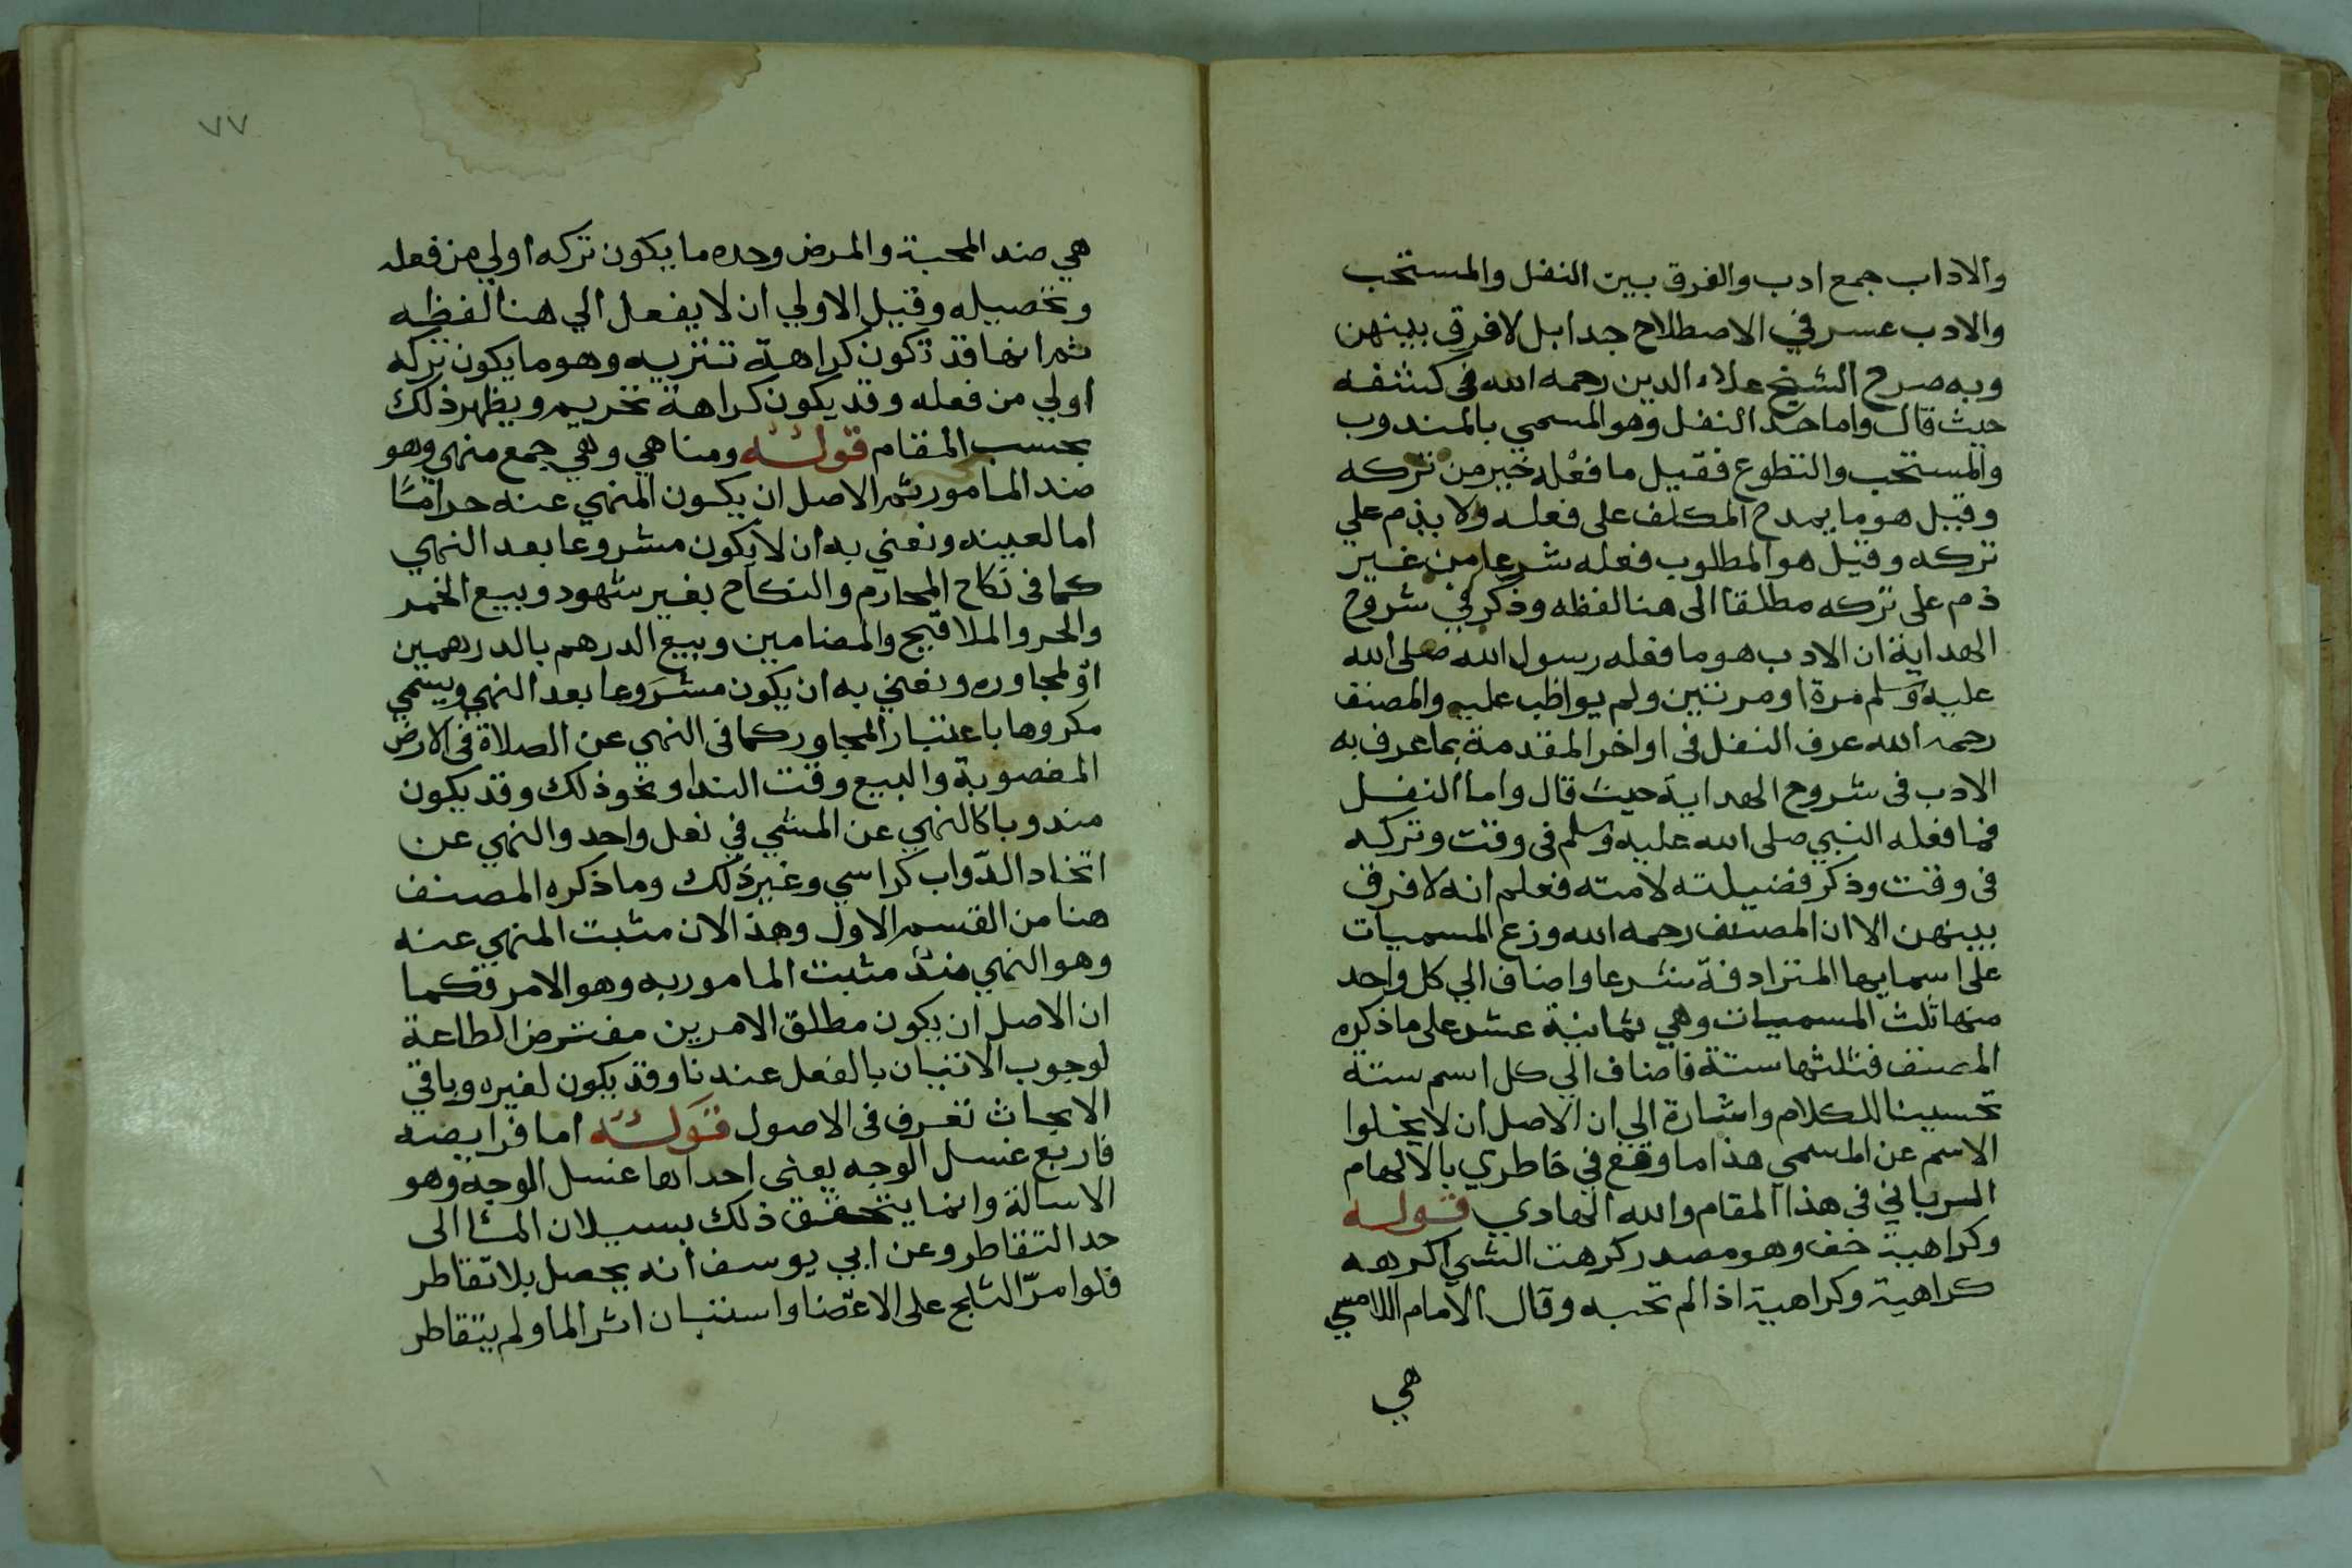 والاداب جمع ادب والفرق بين النفل والمستحب
والادب عسر في الاصطلاح جدا بل لا فرق بينهن
وبه صرح الشيخ علاء الدين رحمه الله فى كشفه
حيث قال واما حد النفل وهو المسمي بالمندوب
والمستحب والتطوع فقيل ما فعله خير من تركه
وقيل هو ما يمدح المكلف على فعله ولا يذم علي
تركه وقيل هو المطلوب فعله شرعا من غير
ذم على تركه مطلقا الى هنا لفظه وذكر في شروح
الهداية ان الادب هو ما فعله رسول الله صلى الله
عليه وسلم مرة او مرتين ولم يواظب عليه والمصنف
رحمه الله عرف النفل فى اواخر المقدمة بما عرف به
الادب فى شروح الهداية حيث قال واما النفل
فما فعله النبي صلى الله عليه وسلم فى وقت وتركه
فى وقت وذكر فضيلته لامته فعلم انه لا فرق
بينهن الا ان المصنف رحمه الله وزع المسميات
على اسمايها المترادفة شرعا واضاف الي كل واحد
منها ثلث المسميات وهي ثمانية عشر على ما ذكره
المصنف فثلثها ستة فاضاف الي كل اسم ستة
تحسينا للكلام واشارة الي ان الاصل ان لا يخلوا
الاسم عن المسمي هذا ما وقع في خاطري بالالهام
الرباني فى هذا المقام والله الهادي قوله
وكراهية خف وهو مصدر كرهت الشي اكرهه
كراهية وكراهية اذا لم تحبه وقال الامام اللامسي
هي
٧٧
هي ضد المحبة والمرض وحده ما يكون تركه اولي من فعله
وتحصيله وقيل الاولي ان لا يفعل الي هنا لفظه
ثم انها قد تكون كراهة تنزيه وهو ما يكون تركه
اولي من فعله وقد يكون كراهة تحريم ويظهر ذلك
بحسب المقام قوله ومناهي وهي جمع منهي وهو
ضد المامور ثم الاصل ان يكون المنهي عنه حراما
اما لعينه ونعني به ان لا يكون مشروعا بعد النهي
كما فى نكاح المحارم والنكاح بغير شهود وبيع الخمر
والحر والملاقيح والمضامين وبيع الدرهم بالدرهمين
او لمجاوره ونعني به ان يكون مشروعا بعد النهي ويسمي
مكروها باعتبار المجاور كما فى النهي عن الصلاة فى الارض
المغصوبة والبيع وقت الندا ونحو ذلك وقد يكون
مندوبا كالنهي عن المشي في نعل واحد والنهي عن
اتخاد الدواب كراسي وغير ذلك وما ذكره المصنف
هنا من القسم الاول وهذا لان مثبت المنهي عنه
وهو النهي ضد مثبت المامور به وهو الامر فكما
ان الاصل ان يكون مطلق الامرين مفترض الطاعة
لوجوب الاتيان بالفعل عندنا وقد يكون لغيره وباقي
الابحاث تعرف فى الاصول قوله اما فرايضه
فاربع غسل الوجه يعنى احداها غسل الوجه وهو
الاسالة وانما يتحقق ذلك بسيلان الما الى
حد التقاطر وعن ابي يوسف انه يحصل بلا تقاطر
فلوا مر الثلج على الاعضا واستبان اثر الما ولم يتقاطر